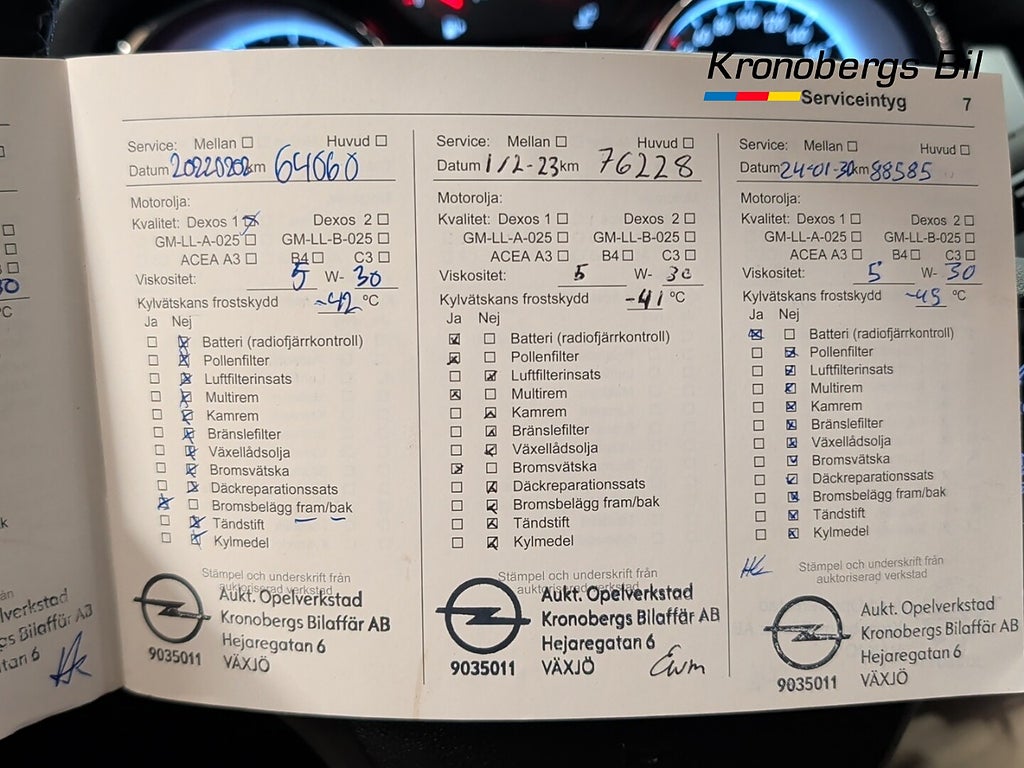 Kronobergs Bil
Serviceintyg 7
Service: Mellan ☐ Huvud ☐
Datum 20220202 km 64060
Motorolja:
Kvalitet: Dexos 1 ☒ Dexos 2 ☐
GM-LL-A-025 ☐ GM-LL-B-025 ☐
ACEA A3 ☐ B4 ☐ C3 ☐
Viskositet: 5 W- 30
Kylvätskans frostskydd -42 °C
Ja Nej
☐ ☒ Batteri (radiofjärrkontroll)
☐ ☒ Pollenfilter
☐ ☒ Luftfilterinsats
☐ ☒ Multirem
☐ ☒ Kamrem
☐ ☒ Bränslefilter
☐ ☒ Växellådsolja
☐ ☒ Bromsvätska
☐ ☒ Däckreparationssats
☒ ☐ Bromsbelägg fram/bak
☐ ☒ Tändstift
☐ ☒ Kylmedel
Stämpel och underskrift från
auktoriserad verkstad
Aukt. Opelverkstad
Kronobergs Bilaffär AB
Hejaregatan 6
9035011 VÄXJÖ
Service: Mellan ☐ Huvud ☐
Datum 1/2-23 km 76228
Motorolja:
Kvalitet: Dexos 1 ☐ Dexos 2 ☐
GM-LL-A-025 ☐ GM-LL-B-025 ☐
ACEA A3 ☐ B4 ☐ C3 ☐
Viskositet: 5 W- 30
Kylvätskans frostskydd -41 °C
Ja Nej
☒ ☐ Batteri (radiofjärrkontroll)
☒ ☐ Pollenfilter
☐ ☒ Luftfilterinsats
☒ ☐ Multirem
☐ ☒ Kamrem
☐ ☒ Bränslefilter
☐ ☒ Växellådsolja
☒ ☐ Bromsvätska
☐ ☒ Däckreparationssats
☐ ☒ Bromsbelägg fram/bak
☐ ☒ Tändstift
☐ ☒ Kylmedel
Stämpel och underskrift från
auktoriserad verkstad
Aukt. Opelverkstad
Kronobergs Bilaffär AB
Hejaregatan 6
9035011 VÄXJÖ
Service: Mellan ☐ Huvud ☐
Datum 24-01-30 km 88585
Motorolja:
Kvalitet: Dexos 1 ☐ Dexos 2 ☐
GM-LL-A-025 ☐ GM-LL-B-025 ☐
ACEA A3 ☐ B4 ☐ C3 ☐
Viskositet: 5 W- 30
Kylvätskans frostskydd -45 °C
Ja Nej
☒ ☐ Batteri (radiofjärrkontroll)
☐ ☒ Pollenfilter
☐ ☒ Luftfilterinsats
☐ ☒ Multirem
☐ ☒ Kamrem
☐ ☒ Bränslefilter
☐ ☒ Växellådsolja
☐ ☒ Bromsvätska
☐ ☒ Däckreparationssats
☐ ☒ Bromsbelägg fram/bak
☐ ☒ Tändstift
☐ ☒ Kylmedel
Stämpel och underskrift från
auktoriserad verkstad
Aukt. Opelverkstad
Kronobergs Bilaffär AB
Hejaregatan 6
9035011 VÄXJÖ